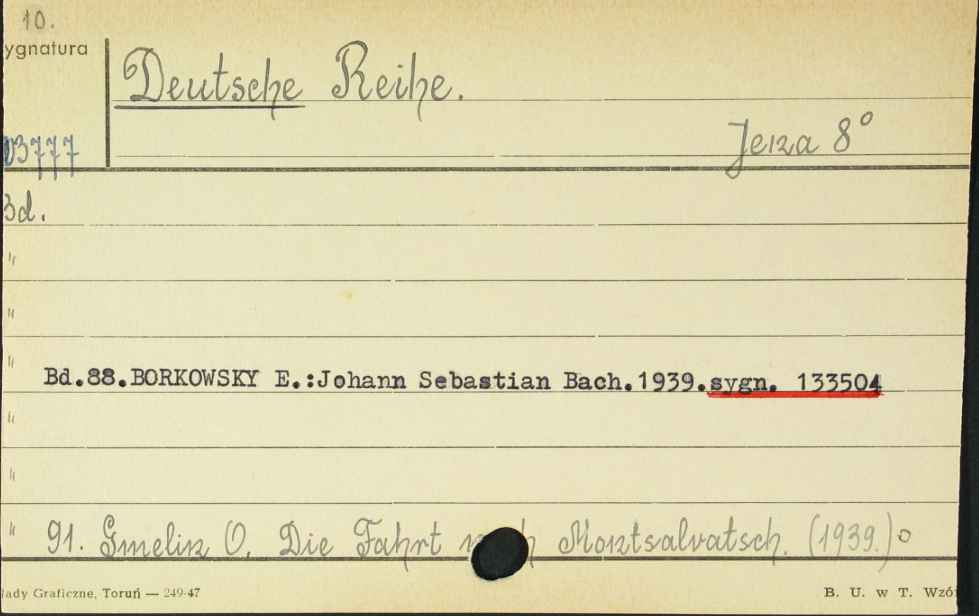 10.
ygnatura
Deutsche Reihe.
03777
Jena 8°
Bd.
"
"
"
Bd.88.BORKOWSKY E.:Johann Sebastian Bach.1939.sygn. 133504
"
"
" 91. Gmelin O. Die Fahrt nach Montsalvatsch. (1939.)
łady Graficzne, Toruń — 249-47
B. U. w T. Wzór